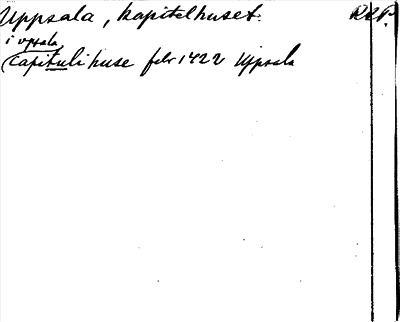 Uppsala, kapitelhuset. RAP.
i upsala
capituli huse febr 1422 Uppsala